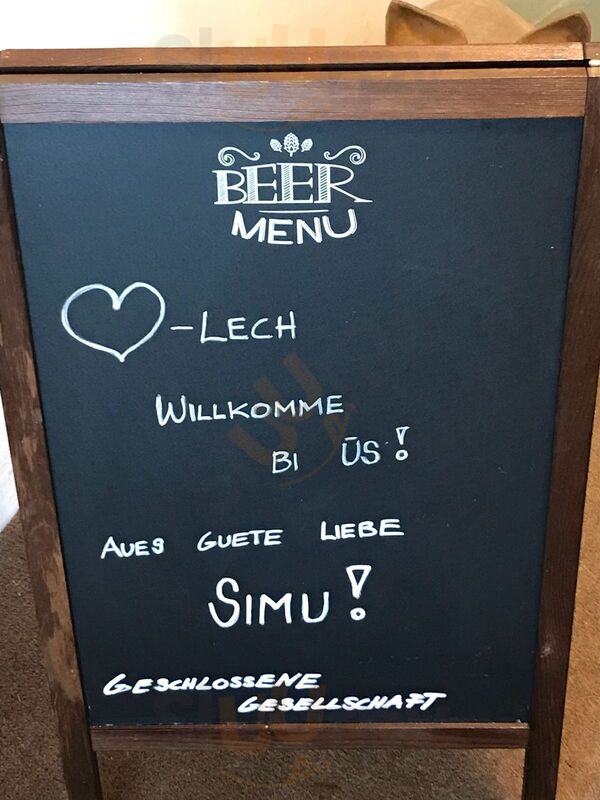 BEER
MENU
♡-LECH
WILLKOMME
BI ŪS!
AUES GUETE LIEBE
SIMU!
GESCHLOSSENE
GESELLSCHAFT